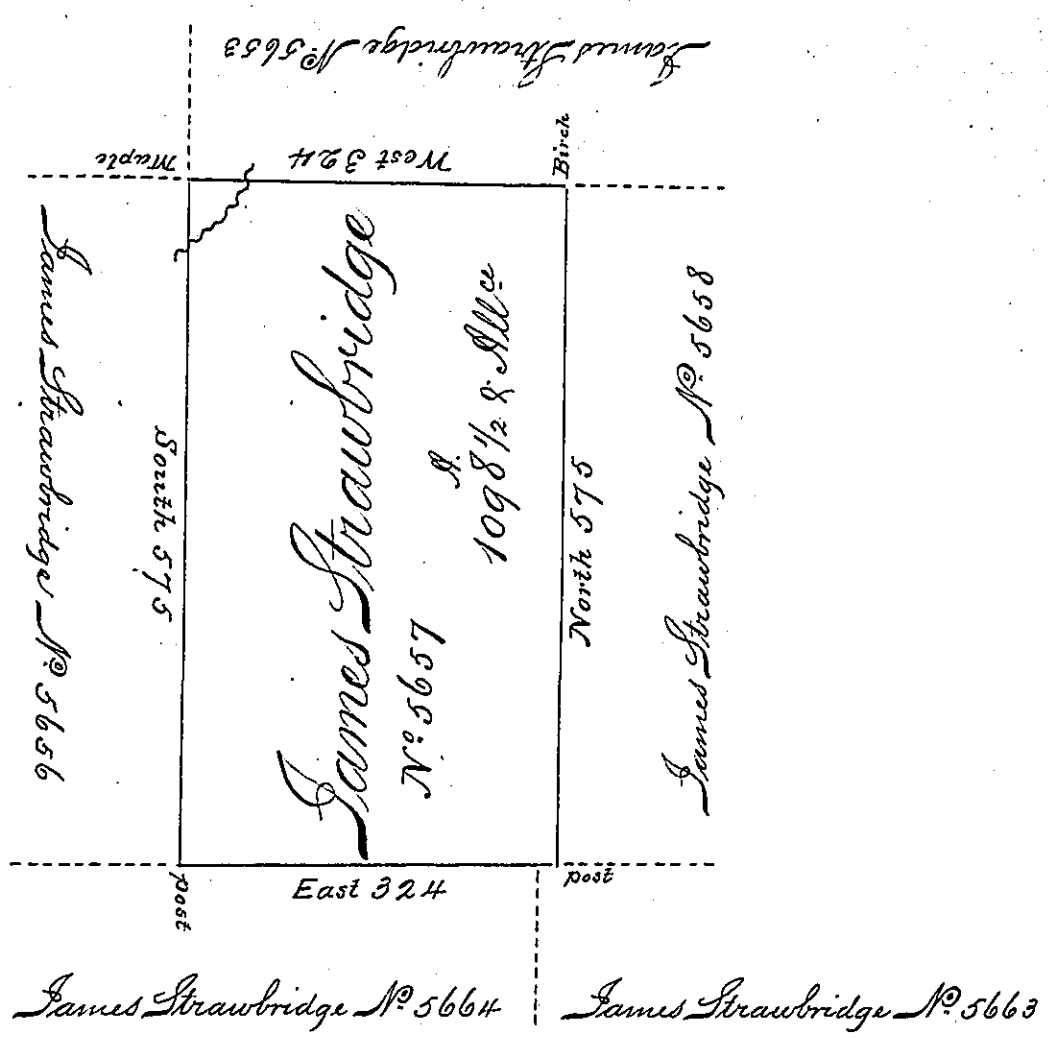 James Strawbridge No. 5653
West 324
Maple
Birch
James Strawbridge No. 5656
South 575
James Strawbridge
No. 5657
A.
1098 1/2 & Allce
North 575
James Strawbridge No. 5658
post
East 324
post
James Strawbridge No. 5664
James Strawbridge No. 5663